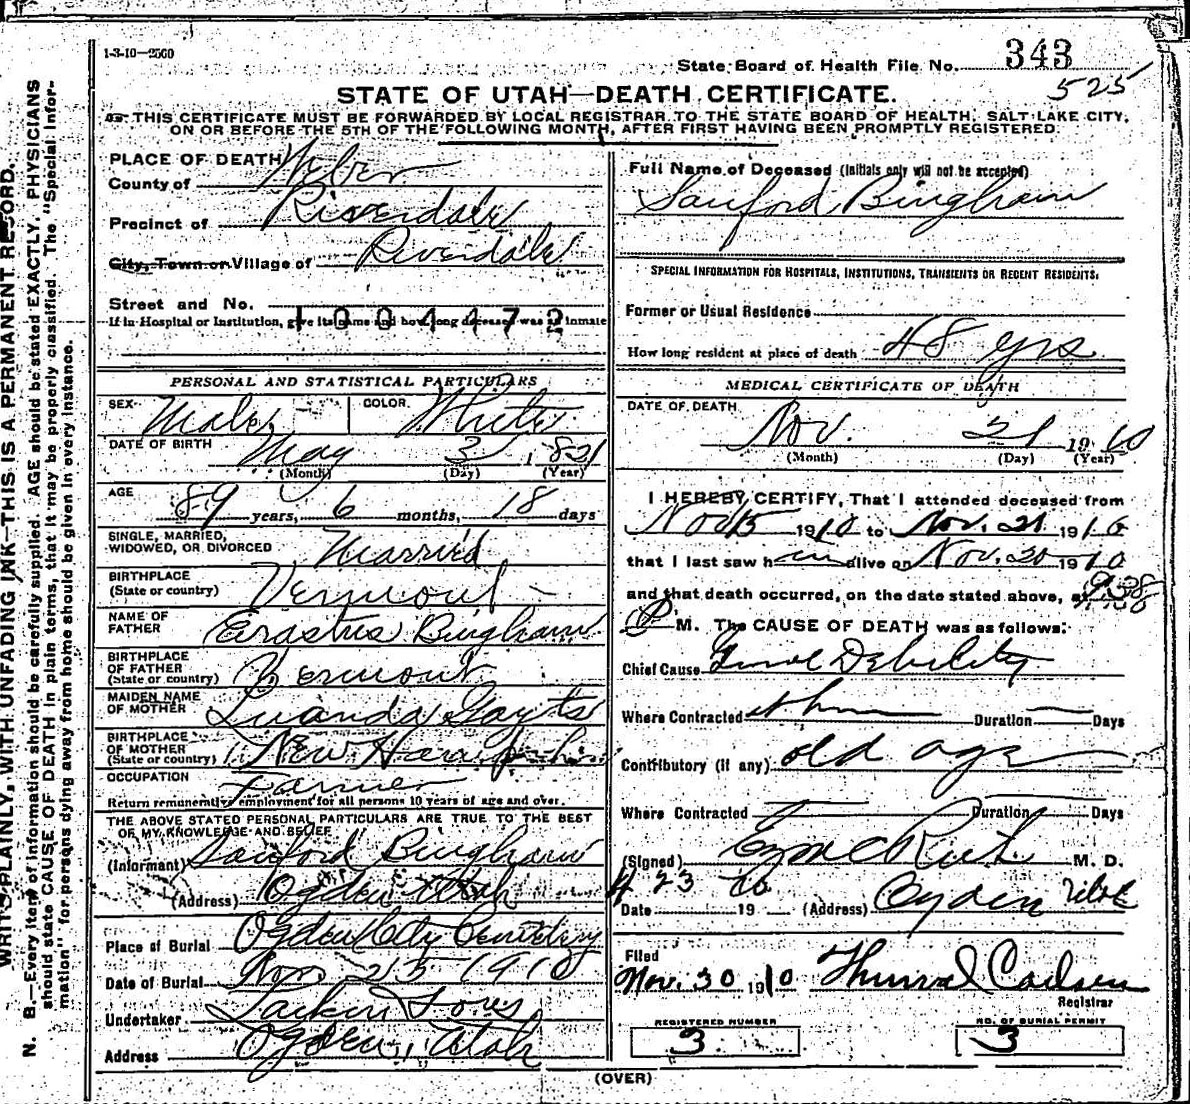 1-3-10—2500
State Board of Health File No. 343
525
STATE OF UTAH—DEATH CERTIFICATE.
THIS CERTIFICATE MUST BE FORWARDED BY LOCAL REGISTRAR TO THE STATE BOARD OF HEALTH, SALT LAKE CITY,
ON OR BEFORE THE 5TH OF THE FOLLOWING MONTH, AFTER FIRST HAVING BEEN PROMPTLY REGISTERED.
PLACE OF DEATH
County of Weber
Precinct of Riverdale
City, Town or Village of Riverdale
Street and No.
1004472
If in Hospital or Institution, give its name and how long deceased was an inmate
PERSONAL AND STATISTICAL PARTICULARS
SEX Male COLOR White
DATE OF BIRTH May 3 1821
(Month) (Day) (Year)
AGE
89 years, 6 months, 18 days
SINGLE, MARRIED,
WIDOWED, OR DIVORCED Married
BIRTHPLACE
(State or country) Vermont
NAME OF
FATHER Erastus Bingham
BIRTHPLACE
OF FATHER
(State or country) Vermont
MAIDEN NAME
OF MOTHER Luanda Gayts
BIRTHPLACE
OF MOTHER
(State or country) New Hampshire
OCCUPATION Farmer
Return remunerative employment for all persons 10 years of age and over.
THE ABOVE STATED PERSONAL PARTICULARS ARE TRUE TO THE BEST
OF MY KNOWLEDGE AND BELIEF
(Informant) Sanford Bingham
(Address) Ogden Utah
Place of Burial Ogden City Cemetery
Date of Burial Nov 25 1910
Undertaker Larkin & Sons
Address Ogden, Utah
Full Name of Deceased (Initials only will not be accepted)
Sanford Bingham
SPECIAL INFORMATION FOR HOSPITALS, INSTITUTIONS, TRANSIENTS OR RECENT RESIDENTS.
Former or Usual Residence
How long resident at place of death 48 yrs
MEDICAL CERTIFICATE OF DEATH
DATE OF DEATH
Nov. 21 1910
(Month) (Day) (Year)
I HEREBY CERTIFY, That I attended deceased from
Nov 15 1910 to Nov. 21 1910
that I last saw him alive on Nov. 20 1910
and that death occurred, on the date stated above, at 9.38
P M. The CAUSE OF DEATH was as follows:
Chief Cause Debility
Where Contracted Duration Days
Contributory (if any) old age
Where Contracted Duration Days
(Signed) M. D.
Date 23 19 (Address) Ogden Utah
Filed
Nov. 30 1910
Registrar
REGISTERED NUMBER
3
NO. OF BURIAL PERMIT
3
(OVER)
WRITE PLAINLY, WITH UNFADING INK—THIS IS A PERMANENT RECORD.
N. B.—Every item of information should be carefully supplied. AGE should be stated EXACTLY. PHYSICIANS
should state CAUSE OF DEATH in plain terms, that it may be properly classified. The "Special Infor-
mation" for persons dying away from home should be given in every instance.